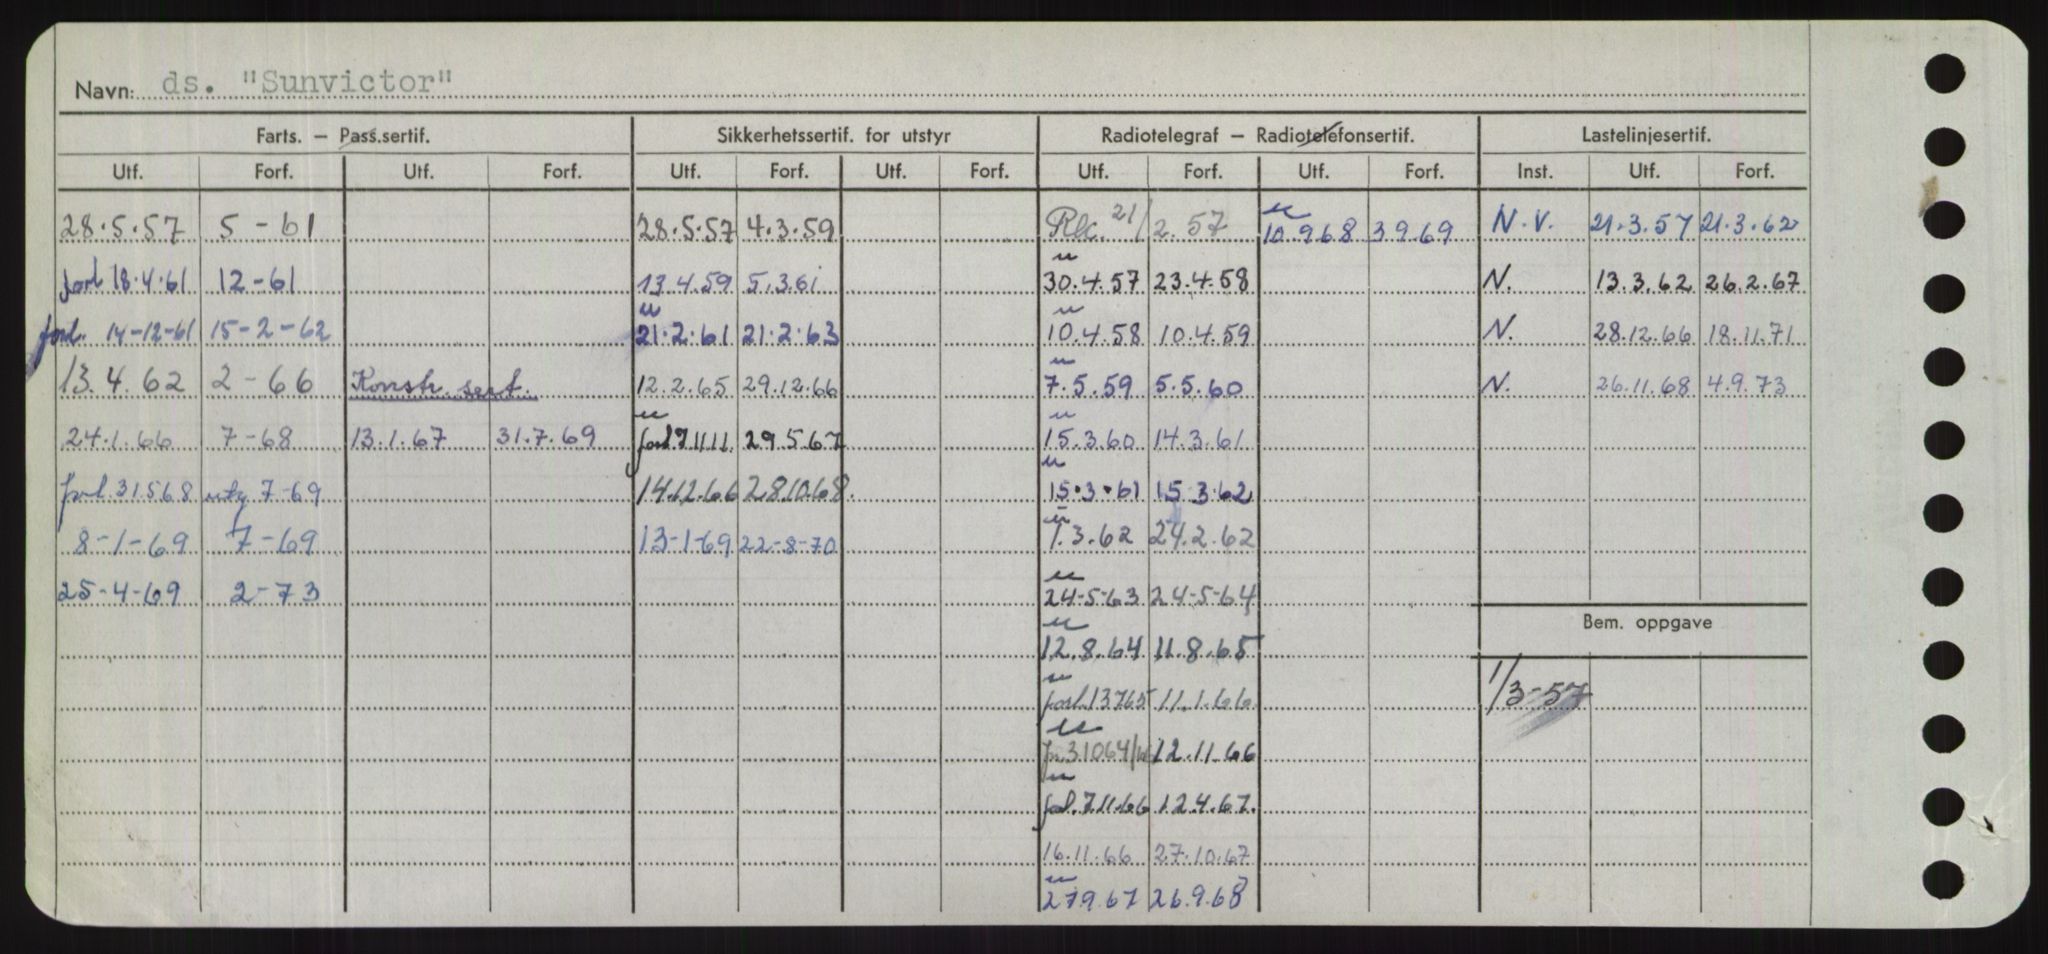 Navn: ds. "Sunvictor"
Farts. — Pass.sertif. Sikkerhetssertif. for utstyr Radiotelegraf — Radiotelefonsertif. Lastelinjesertif.
Utf. Forf. Utf. Forf. Utf. Forf. Utf. Forf. Utf. Forf. Utf. Forf. Inst. Utf. Forf.
28.5.57 5-61 28.5.57 4.3.59 21/2.57 10.968 3969 N.V. 21.3.57 21.3.62
forl 18.4.61 12-61 13.4.59 5.3.61 30.4.57 23.4.58 N. 13.3.62 26.2.67
forl. 14-12-61 15-2-62 21.2.61 21.2.63 10.4.58 10.4.59 N. 28.12.66 18.11.71
13.4.62 2-66 Konstr. sert. 12.2.65 29.12.66 7.5.59 5.5.60 N. 26.11.68 4.9.73
24.1.66 7-68 13.1.67 31.7.69 forl 29567 15.3.60 14.3.61
forl. 31568 utg 7-69 14.12.66 28.10.68. 15.3.61 15.3.62
8-1-69 7-69 13-1-69 22-8-70 1.3.62 24.2.62
25-4-69 2-73 24-5-63 24-5-64
Bem. oppgave
12.8.64 11.8.65
forl. 13765 11.1.66 1/3-57
12.11.66
forl. 7.11.66 12.4.67.
16.11.66 27.10.67
27.9.67 26.9.68